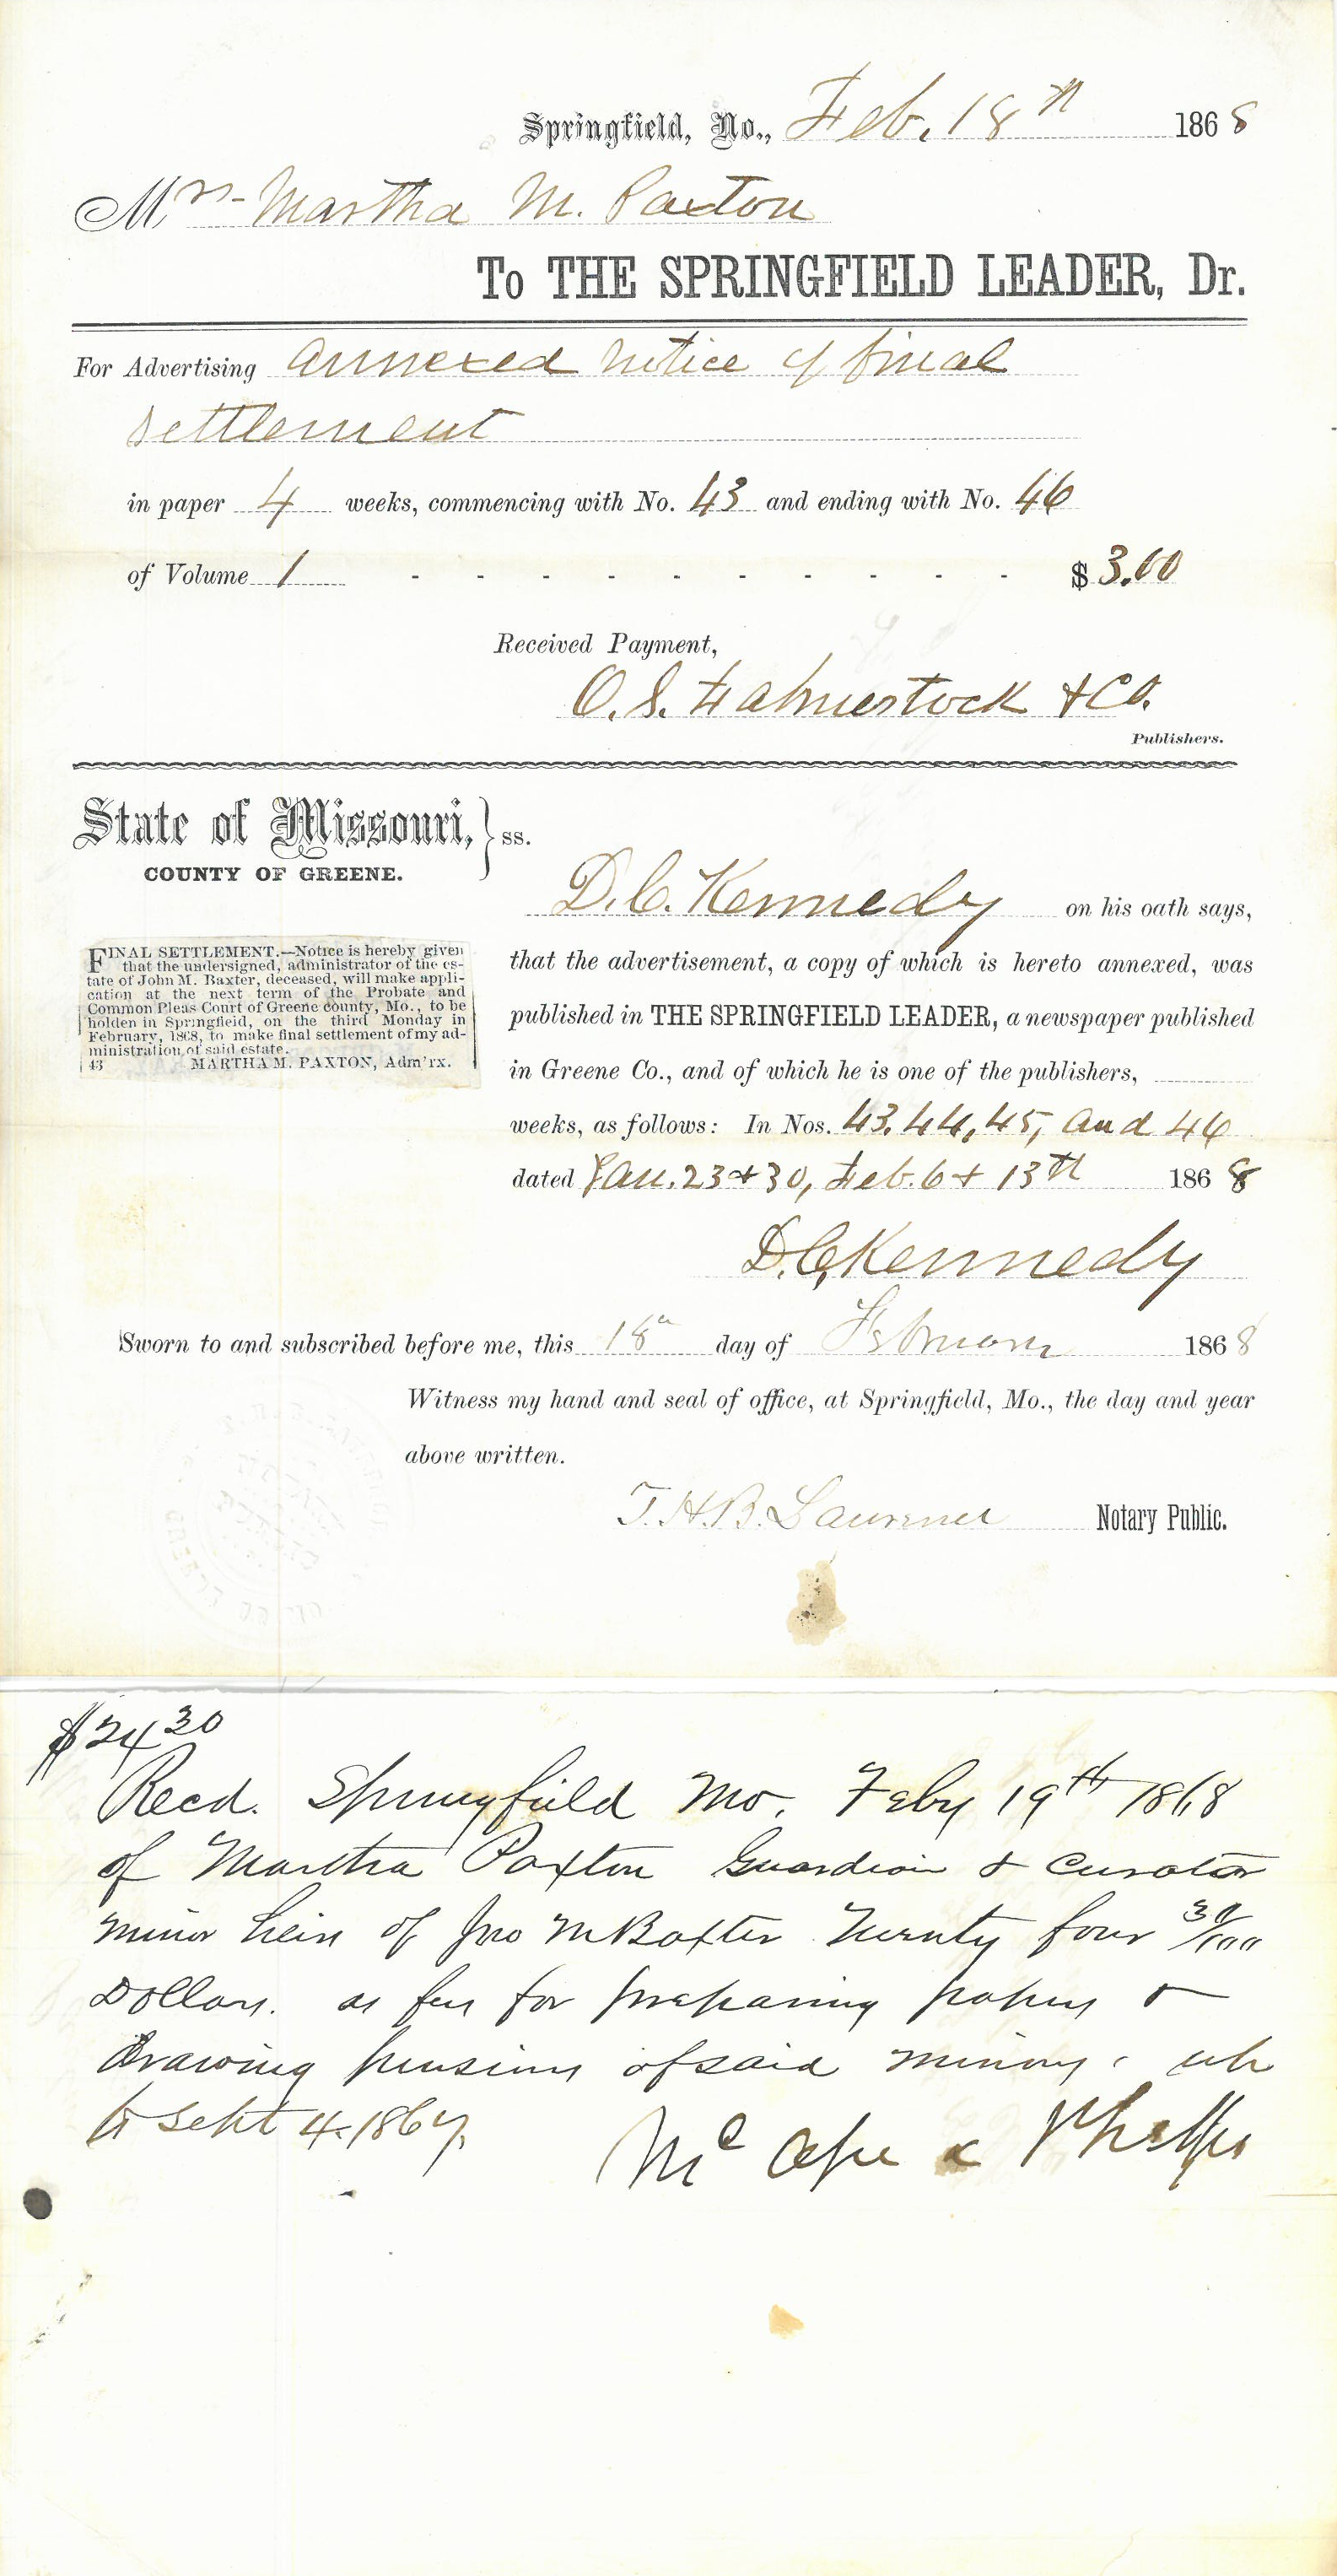 Springfield, Mo., Feb. 18th 1868
Mrs. Martha M. Paxton
To THE SPRINGFIELD LEADER, Dr.
For Advertising annexed notice of final
settlement
in paper 4 weeks, commencing with No. 43 and ending with No. 46
of Volume 1 - - - - - - - - - - $ 3.00
Received Payment,
O. S. Fahnestock & Co.
Publishers.
State of Missouri, } ss.
COUNTY OF GREENE.
D. C. Kennedy on his oath says,
that the advertisement, a copy of which is hereto annexed, was
published in THE SPRINGFIELD LEADER, a newspaper published
in Greene Co., and of which he is one of the publishers,
weeks, as follows: In Nos. 43, 44, 45, and 46
dated Jan. 23 & 30, Feb. 6 & 13th 1868
D. C. Kennedy
FINAL SETTLEMENT.—Notice is hereby given
that the undersigned, administrator of the es-
tate of John M. Baxter, deceased, will make appli-
cation at the next term of the Probate and
Common Pleas Court of Greene county, Mo., to be
holden in Springfield, on the third Monday in
February, 1868, to make final settlement of my ad-
ministration of said estate.
43 MARTHA M. PAXTON, Adm'rx.
Sworn to and subscribed before me, this 18th day of February 1868
Witness my hand and seal of office, at Springfield, Mo., the day and year
above written.
T. H. B. Lawrence Notary Public.
$24 30
Recd. Springfield Mo. Feby 19th 1868
of Martha Paxton Guardian & Curator
minor heirs of Jno M Baxter Twenty four 30/100
Dollars. as fees for preparing papers &
drawing pensions of said minors,
to Sept 4. 1867.
& Phelps